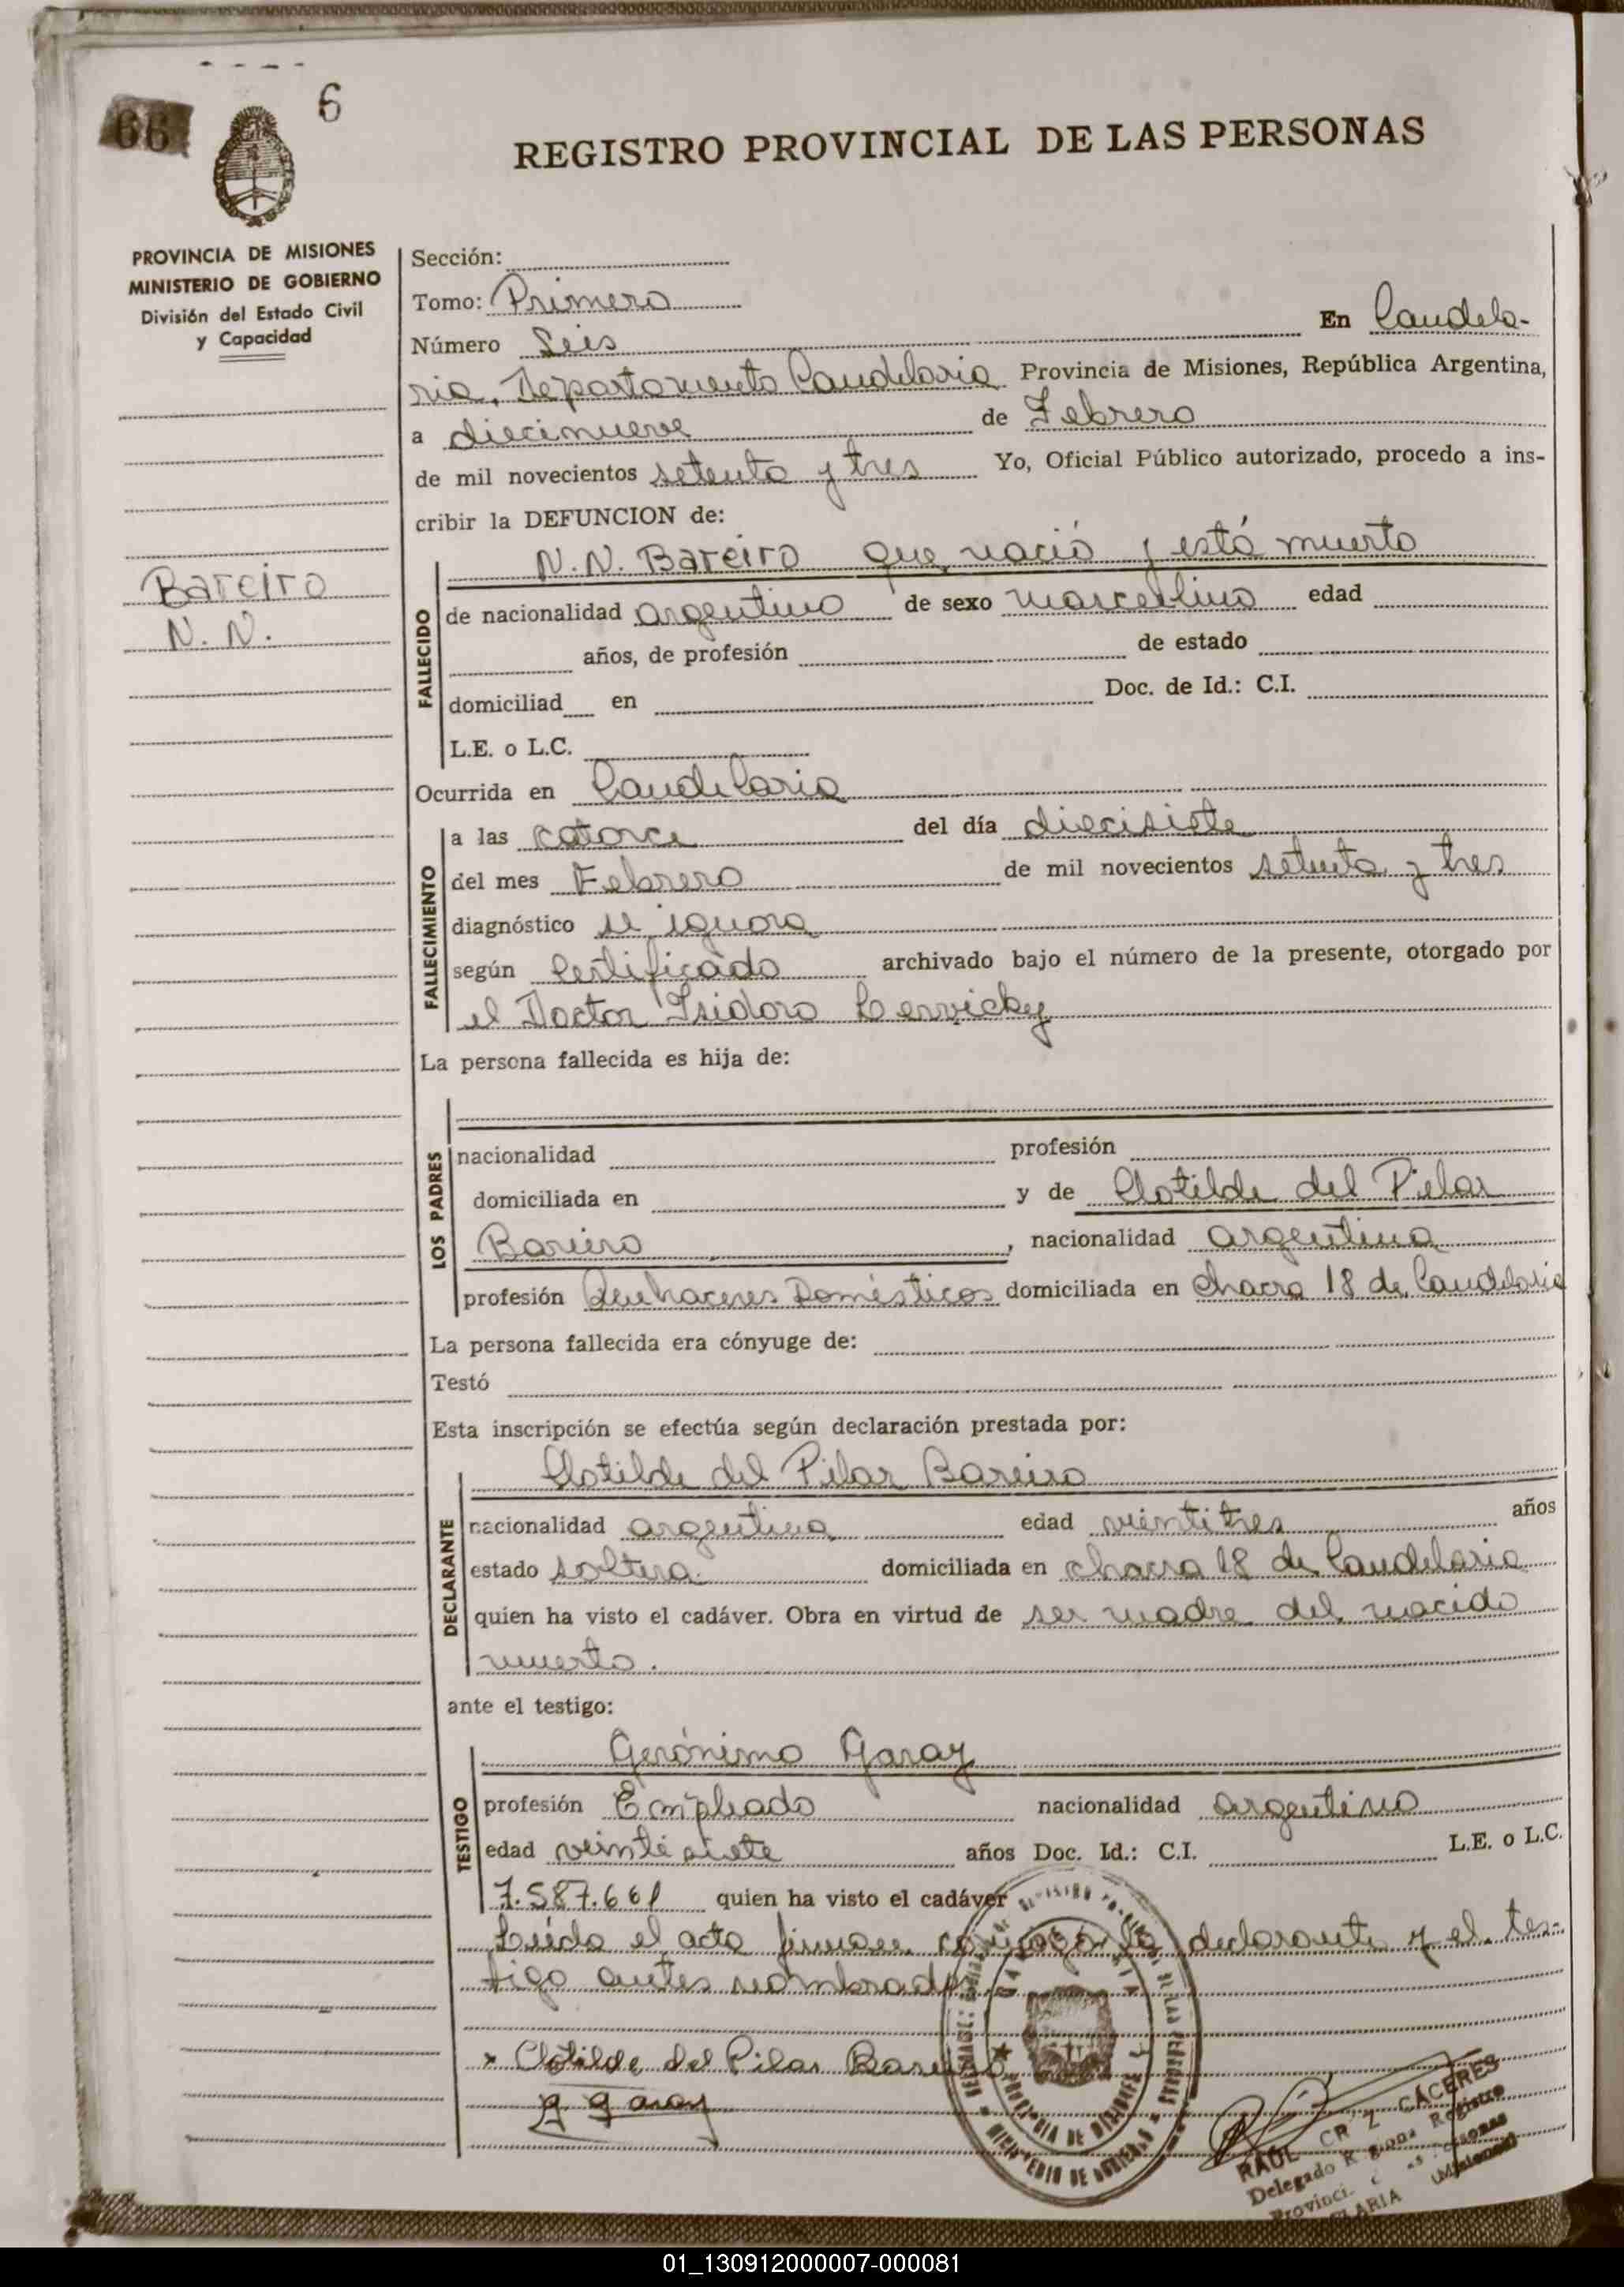 66
6
REGISTRO PROVINCIAL DE LAS PERSONAS
PROVINCIA DE MISIONES
MINISTERIO DE GOBIERNO
División del Estado Civil
y Capacidad
Bareiro
N. N.
Sección:
Tomo: Primero
Número Seis En Candela-
ria, Departamento Candelaria Provincia de Misiones, República Argentina,
a diecinueve de Febrero
de mil novecientos setenta y tres Yo, Oficial Público autorizado, procedo a ins-
cribir la DEFUNCION de:
N. N. Bareiro que nació y está muerto
FALLECIDO
de nacionalidad argentino de sexo masculino edad
años, de profesión de estado
domiciliad en Doc. de Id.: C.I.
L.E. o L.C.
Ocurrida en Candelaria
FALLECIMIENTO
a las catorce del día diecisiete
del mes Febrero de mil novecientos setenta y tres
diagnóstico se ignora
según Certificado archivado bajo el número de la presente, otorgado por
el Doctor Isidoro
La persona fallecida es hija de:
LOS PADRES
nacionalidad profesión
domiciliada en y de Clotilde del Pilar
Bareiro, nacionalidad argentina
profesión Quehaceres Domésticos domiciliada en chacra 18 de Candelaria
La persona fallecida era cónyuge de:
Testó
Esta inscripción se efectúa según declaración prestada por:
Clotilde del Pilar Bareiro
DECLARANTE
nacionalidad argentina edad veintitres años
estado soltera. domiciliada en chacra 18 de Candelaria
quien ha visto el cadáver. Obra en virtud de ser madre del nacido
muerto.
ante el testigo:
Gerónimo Garay
TESTIGO
profesión Empleado nacionalidad argentino
edad veintisiete años Doc. Id.: C.I. L.E. o L.C.
7.587.661 quien ha visto el cadáver
Leída el acta firman conmigo la declarante y el tes-
tigo antes nombrados
x Clotilde del Pilar Bareiro
G Garay
PROVINCIA DE MISIONES
MINISTERIO DE GOBIERNO
RAUL CR Z CACERES
Delegado R giona Registro
Provinci
ELARIA (Misiones)
01_130912000007-000081